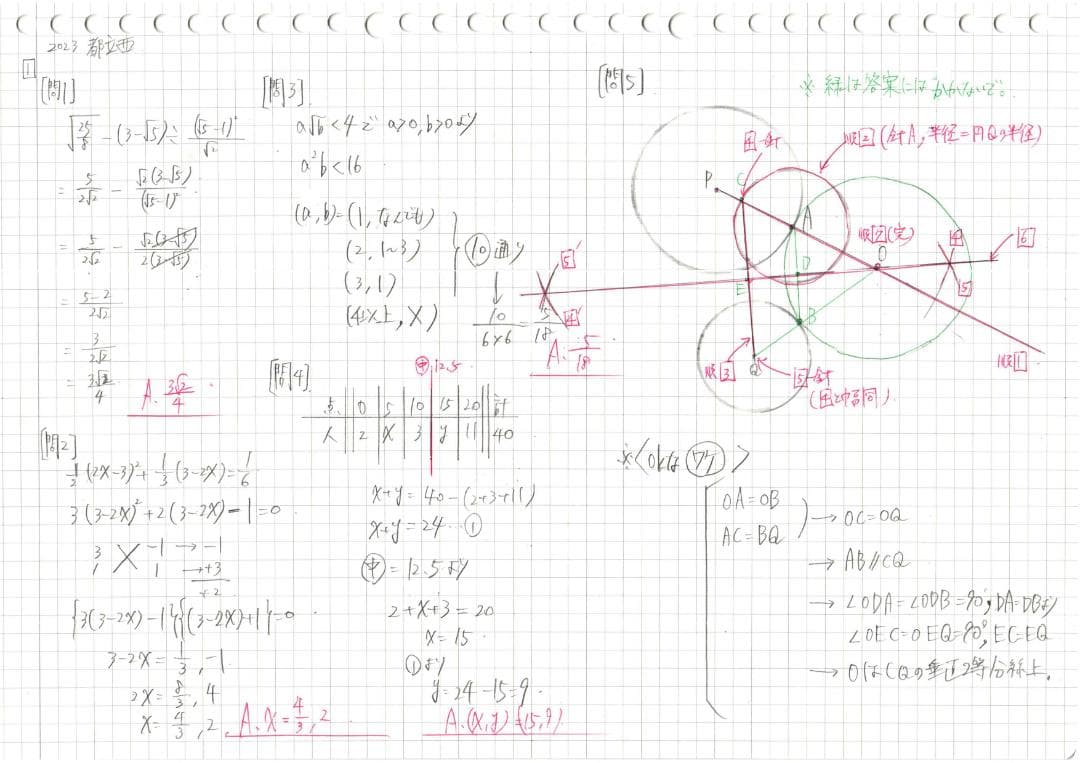 2023 都立西
1
[問1]
√25/8 - (3-√5) ÷ (√5-1)²/√2
= 5/2√2 - √2(3-√5)/(√5-1)²
= 5/2√2 - √2(3-√5)/2(3-√5)
= 5-2/2√2
= 3/2√2
= 3√2/4
A. 3√2/4
[問2]
1/2(2x-3)²+1/3(3-2x)=1/6
3(3-2x)²+2(3-2x)-1=0
3 -1 → -1
1 1 → +3
+2
{3(3-2x)-1}{(3-2x)+1}=0
3-2x=1/3, -1
2x=8/3, 4
x=4/3, 2
A. x=4/3, 2
[問3]
a√b<4で a>0, b>0より
a²b<16
(a,b)=(1, なんでも)
(2, 1~3)
(3, 1)
(4以上, X)
10通り
↓
10/6×6=5/18
A. 5/18
[問4]
中 12.5
点 0 5 10 15 20 計
人 2 x 3 y 11 40
x+y=40-(2+3+11)
x+y=24…①
中=12.5より
2+x+3=20
x=15
①より
y=24-15=9.
A. (x,y)=(15,9)
[問5]
※ 緑は答案にはかかないで。
4-針
順2(針A, 半径=円Qの半径)
P
C
A
順2(完)
O
4
6
5
D
E
5'
4'
B
順1
順3
Q
5-針
(4と幅同)
※<OKなワケ>
OA=OB
AC=BQ
→ OC=OQ
→ AB//CQ
→ ∠ODA=∠ODB=90°, DA=DBより
∠OEC=OEQ=90°, EC=EQ
→ OはCQの垂直2等分線上.